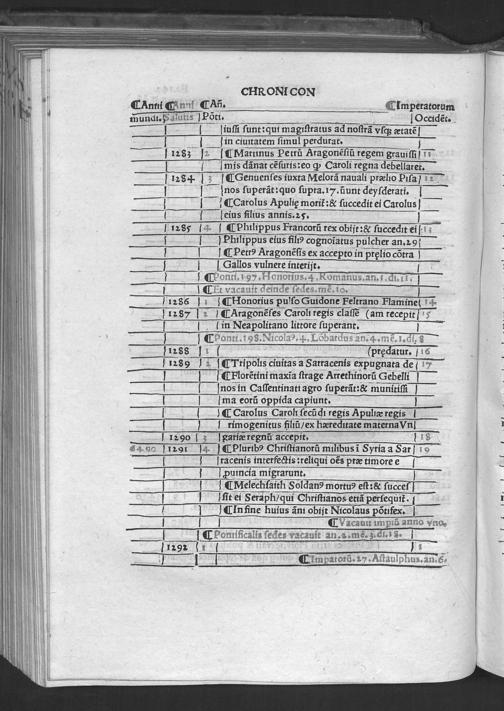 CHRONICON
¶Anni ¶Anni ¶Añ. ¶Imperatorum
mundi. Salutis Põti. Occidẽt.
iussi sunt: qui magistratus ad nostrã vsq; ætatẽ
in ciuitatem simul perdurat.
1283 2 ¶Martinus Petrũ Aragonẽsiũ regem grauissi 11
mis dãnat cẽsuris: eo ꝙ Caroli regna debellaret.
1284 3 ¶Genuenses iuxta Melorã nauali prælio Pisa 12
nos superãt: quo supra. 17. ñunt deysderati.
¶Carolus Apulię morit̃: & succedit ei Carolus
eius filius annis. 25.
1285 4 ¶Philippus Francorũ rex obijt: & succedit ei 13
Philippus eius fili⁹ cognoĩatus pulcher an. 29
¶Petr⁹ Aragonẽsis ex accepto in pręlio cõtra
Gallos vulnere interijt.
¶Ponti. 197. Honorius. 4. Romanus. an. 1. di. 11.
¶Et vacauit deinde sedes. mẽ. 10.
1286 1 ¶Honorius pulso Guidone Feltrano Flamine 14
1287 2 ¶Aragonẽses Caroli regis classẽ (am recepit 15
in Neapolitano littore superant.
¶Ponti. 198. Nicola⁹. 4. Lõbardus an. 4. mẽ. 1. di. 8
1288 1 (prędatur. 16
1289 2 ¶Tripolis ciuitas a Sarracenis expugnata de 17
¶Florẽtini maxĩa strage Arrethinorũ Gebelli
nos in Cassentinati agro superãt: & munitissi
ma eorũ oppida capiunt.
¶Carolus Caroli secũdi regis Apuliæ regis
rimogenitus filiũ/ex hæreditate materna Vn
1290 3 gariæ regnũ accepit. 18
6490 1291 4 ¶Plurib⁹ Christianorũ milibus ĩ Syria a Sar 19
racenis interfectis: reliqui oẽs præ timore e
puincia migrarunt.
¶Melechsaith Soldan⁹ mortu⁹ est: & succes
sit ei Seraph/qui Christianos etiã persequit̃.
¶In fine huius ãni obijt Nicolaus põtifex.
¶Vacauit impiũ anno vno.
¶Pontificalis sedes vacauit an. 2. mẽ. 3. di. 18.
1292 1 1
¶Imparorũ. 27. Astaulphus. an. 6.